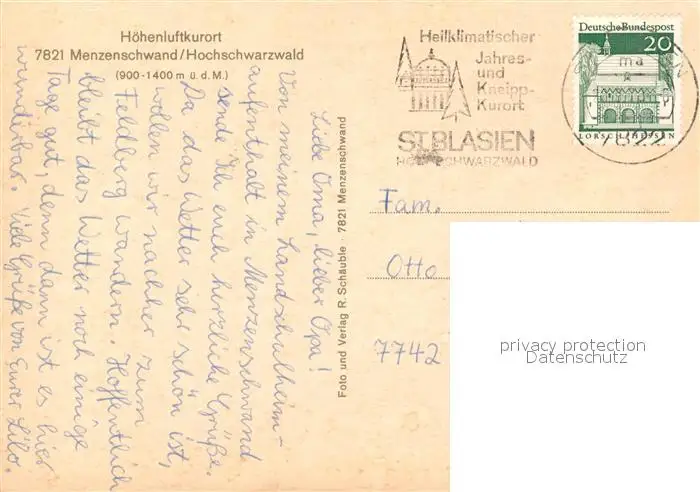 Höhenluftkurort
7821 Menzenschwand/Hochschwarzwald
(900-1400 m ü. d. M.)
Liebe Oma, lieber Opa!
Von meinem Landschulheim-
aufenthalt in Menzenschwand
sende ich euch herzliche Grüße.
Da das Wetter sehr schön ist,
wollen wir nachher zum
Feldberg wandern. Hoffentlich
bleibt das Wetter noch einige
Tage gut, denn dann ist es hier
wunderbar. Viele Grüße von Eurer Lilo.
Foto und Verlag R. Schäuble · 7821 Menzenschwand
Heilklimatischer
Jahres-
und
Kneipp-
Kurort
ST. BLASIEN
HOCHSCHWARZWALD
Deutsche Bundespost
20
LORSCH/HESSEN
7822
Fam.
Otto
7742
privacy protection
Datenschutz